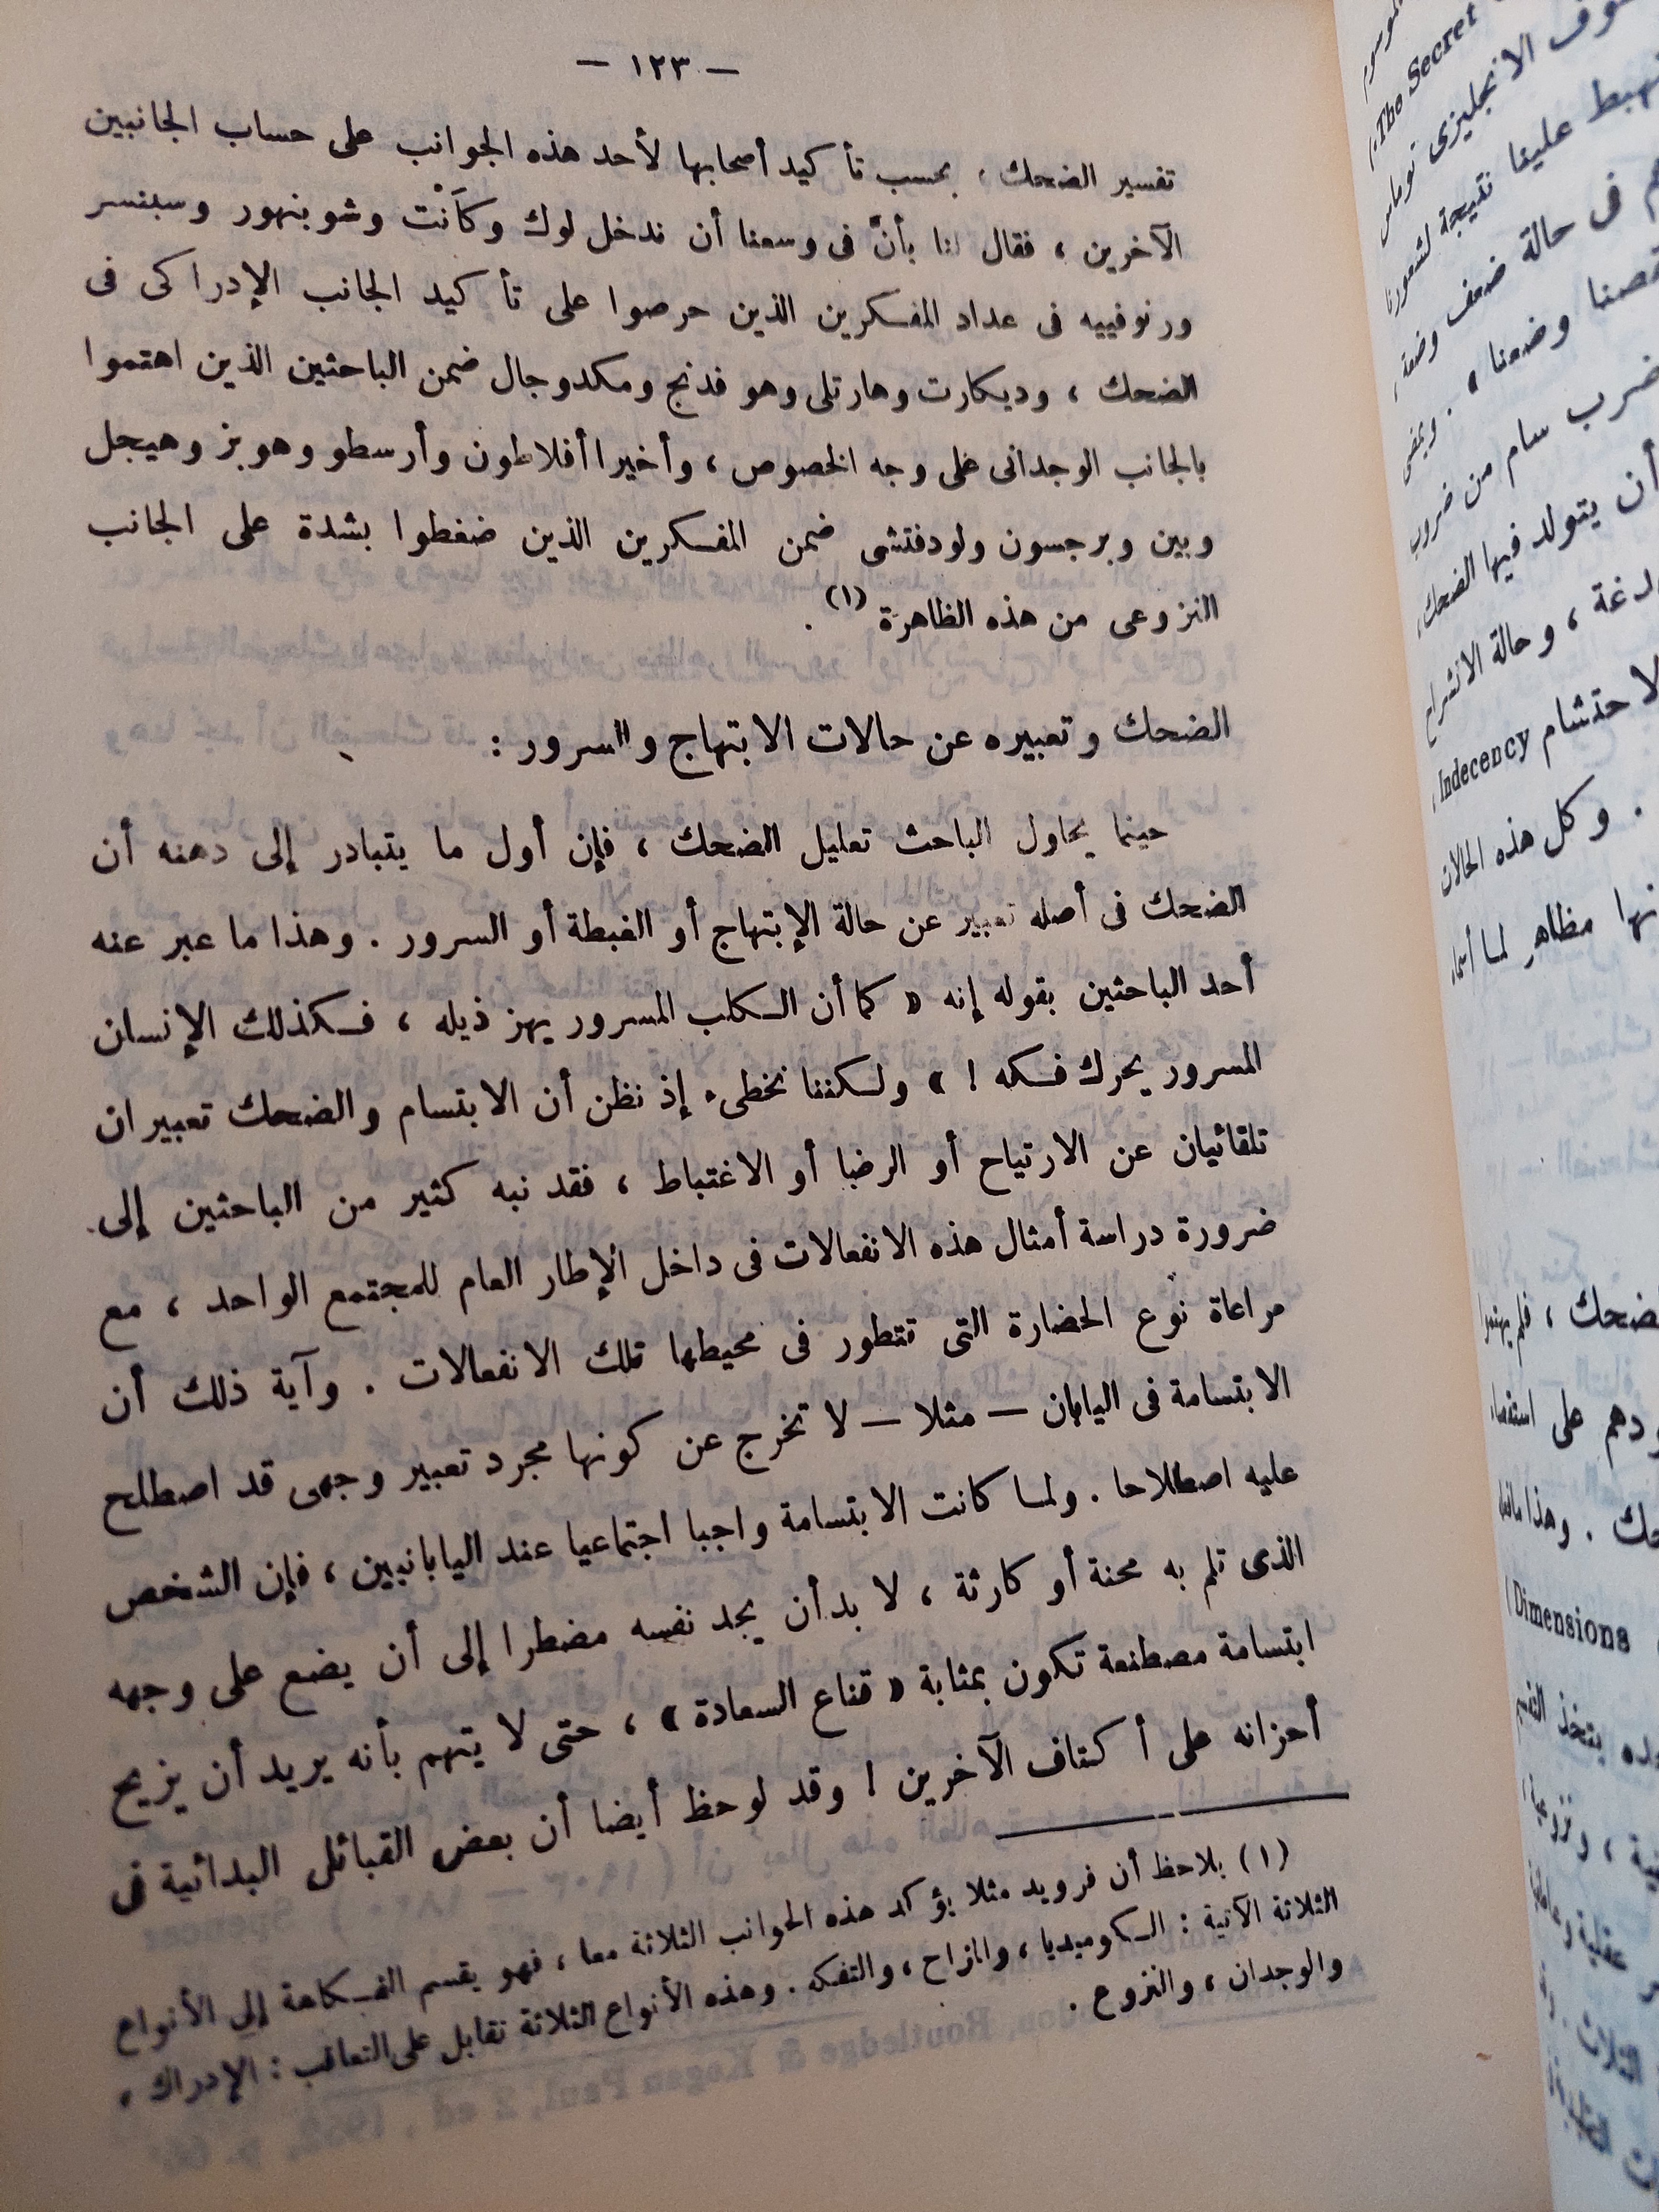 — ١٢٣ —
تفسير الضحك ، بحسب تأكيد أصحابها لأحد هذه الجوانب على حساب الجانبين
الآخرين ، فقال لنا بأنَّ فى وسعنا أن ندخل لوك وكَانْت وشوبنهور وسبنسر
ورنوفييه فى عداد المفكرين الذين حرصوا على تأكيد الجانب الإدراكى فى
الضحك ، وديكارت وهارتلى وهوفدنج ومكدوجال ضمن الباحثين الذين اهتموا
بالجانب الوجدانى على وجه الخصوص ، وأخيرا أفلاطون وأرسطو وهوبز وهيجل
وبين وبرجسون ولودفتشى ضمن المفكرين الذين ضغطوا بشدة على الجانب
النزوعى من هذه الظاهرة (١) .
الضحك وتعبيره عن حالات الابتهاج والسرور :
حينما يحاول الباحث تعليل الضحك ، فإن أول ما يتبادر إلى ذهنه أن
الضحك فى أصله تعبير عن حالة الإبتهاج أو الغبطة أو السرور . وهذا ما عبر عنه
أحد الباحثين بقوله إنه « كما أن الكلب المسرور يهز ذيله ، فكذلك الإنسان
المسرور يحرك فكه ! » ولكننا نخطىء إذ نظن أن الابتسام والضحك تعبيران
تلقائيان عن الارتياح أو الرضا أو الاغتباط ، فقد نبه كثير من الباحثين إلى
ضرورة دراسة أمثال هذه الانفعالات فى داخل الإطار العام للمجتمع الواحد ، مع
مراعاة نوع الحضارة التى تتطور فى محيطها تلك الانفعالات . وآية ذلك أن
الابتسامة فى اليابان — مثلا — لا تخرج عن كونها مجرد تعبير وجهى قد اصطلح
عليه اصطلاحا . ولما كانت الابتسامة واجبا اجتماعيا عند اليابانيين ، فإن الشخص
الذى تلم به محنة أو كارثة ، لا بد أن يجد نفسه مضطرا إلى أن يضع على وجهه
ابتسامة مصطنعة تكون بمثابة « قناع السعادة » ، حتى لا يتهم بأنه يريد أن يزيح
أحزانه على أكتاف الآخرين ! وقد لوحظ أيضا أن بعض القبائل البدائية فى
(١) يلاحظ أن فرويد مثلا يؤكد هذه الجوانب الثلاثة معا ، فهو يقسم الفكاهة إلى الأنواع
الثلاثة الآتية : الكوميديا ، والمزاح ، والتفكه . وهذه الأنواع الثلاثة تقابل على التعاقب : الإدراك ،
والوجدان ، والنزوع .
The Secret
الانجليزى توماس
يهبط علينا نتيجة لشعورنا
فى حالة ضعف وضعة ،
وضعنا » . ويمضى
ضرب سام من ضروب
أن يتولد فيها الضحك ،
، وحالة الانشراح
Indecency
. وكل هذه الحالات
مظاهر لما أسماه
الضحك ، فلم يهتموا
على استقصاء
. وهذا مافعله
Dimensions
يتخذ التقسيم
، ونزوعية
عقلية وعاطفية
الثلاث